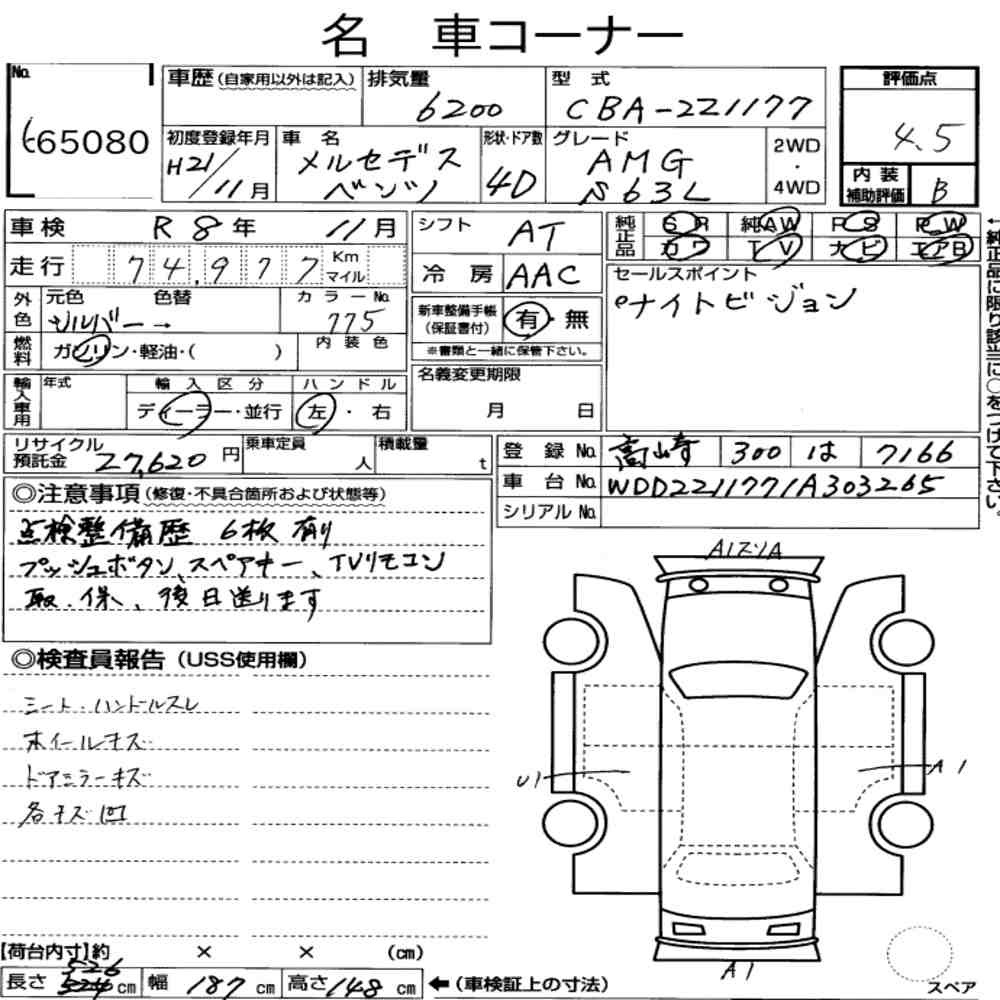 名 車コーナー
No. 65080
車歴(自家用以外は記入)
排気量 6200
型 式 CBA-221177
評価点 4.5
初度登録年月 H21/11月
車 名 メルセデス ベンツ
形状・ドア数 4D
グレード AMG S63L
2WD・4WD
内装補助評価 B
車検 R8年 11月
シフト AT
純正品 SR 純AW PS PW
カワ TV ナビ エアB
走行 74,977 Km マイル
冷 房 AAC
セールスポイント
ナイトビジョン
外色 元色 シルバー→ 色替
カラーNo. 775
新車整備手帳(保証書付) 有・無
※書類と一緒に保管下さい。
燃料 ガソリン・軽油・( )
内 装 色
名義変更期限 月 日
輸入車用 年式
輸 入 区 分 ディーラー・並行
ハ ン ド ル 左・右
リサイクル預託金 27,620円
乗車定員 人
積載量 t
登 録 No. 高崎 300 は 7166
車 台 No. WDD2211771A303265
シリアル No.
◎注意事項(修復・不具合箇所および状態等)
点検整備歴 6枚 有り
プッシュボタン、スペアキー、TVリモコン
取・保、後日送ります
◎検査員報告(USS使用欄)
シート・ハンドルスレ
ホイールキズ
ドアミラーキズ
各キズ凹
U1
A1
A1
【荷台内寸】約 × × (cm)
長さ 526 cm 幅 187 cm 高さ 148 cm ←(車検証上の寸法)
スペア